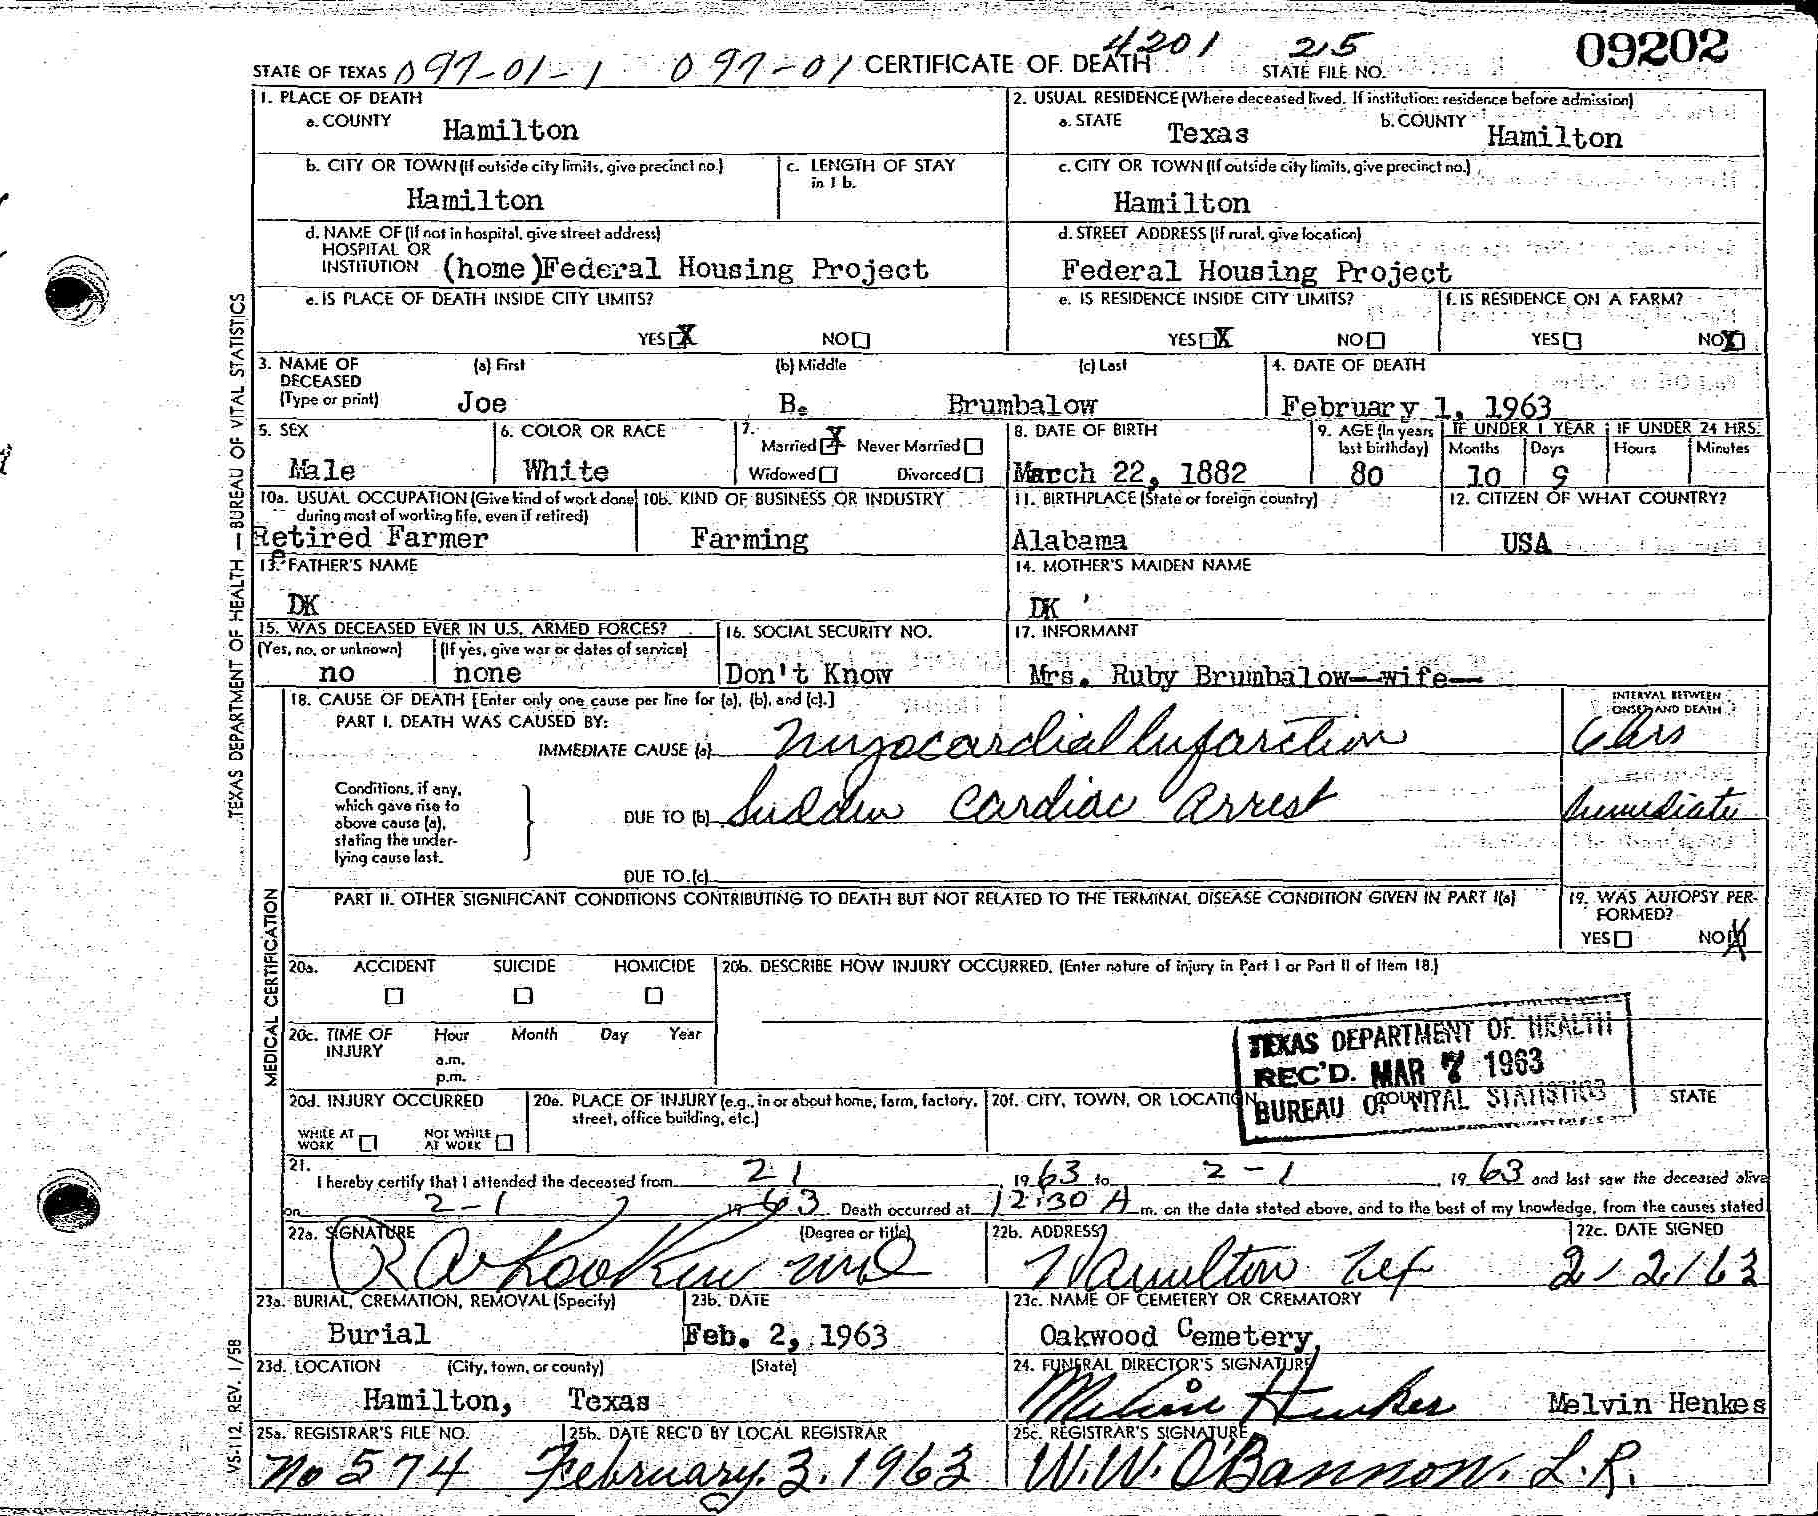 4201 215 09202
STATE OF TEXAS 097-01-1 097-01 CERTIFICATE OF DEATH STATE FILE NO.
1. PLACE OF DEATH
a. COUNTY Hamilton
2. USUAL RESIDENCE (Where deceased lived. If institution: residence before admission)
a. STATE Texas b. COUNTY Hamilton
b. CITY OR TOWN (If outside city limits, give precinct no.) Hamilton
c. LENGTH OF STAY in 1 b.
c. CITY OR TOWN (If outside city limits, give precinct no.) Hamilton
d. NAME OF (If not in hospital, give street address)
HOSPITAL OR
INSTITUTION (home)Federal Housing Project
d. STREET ADDRESS (If rural, give location)
Federal Housing Project
e. IS PLACE OF DEATH INSIDE CITY LIMITS?
YES X NO
e. IS RESIDENCE INSIDE CITY LIMITS?
YES X NO
f. IS RESIDENCE ON A FARM?
YES NO X
3. NAME OF DECEASED (Type or print)
(a) First (b) Middle (c) Last
Joe B. Brumbalow
4. DATE OF DEATH
February 1, 1963
5. SEX
Male
6. COLOR OR RACE
White
7. Married X Never Married
Widowed Divorced
8. DATE OF BIRTH
March 22, 1882
9. AGE (In years last birthday)
80
IF UNDER 1 YEAR
Months Days
10 9
IF UNDER 24 HRS.
Hours Minutes
10a. USUAL OCCUPATION (Give kind of work done during most of working life, even if retired)
Retired Farmer
10b. KIND OF BUSINESS OR INDUSTRY
Farming
11. BIRTHPLACE (State or foreign country)
Alabama
12. CITIZEN OF WHAT COUNTRY?
USA
13. FATHER'S NAME
DK
14. MOTHER'S MAIDEN NAME
DK
15. WAS DECEASED EVER IN U.S. ARMED FORCES?
(Yes, no, or unknown) (If yes, give war or dates of service)
no none
16. SOCIAL SECURITY NO.
Don't Know
17. INFORMANT
Mrs. Ruby Brumbalow—wife—
18. CAUSE OF DEATH [Enter only one cause per line for (a), (b), and (c).]
INTERVAL BETWEEN ONSET AND DEATH
PART I. DEATH WAS CAUSED BY:
IMMEDIATE CAUSE (a) Myocardial Infarction 6 hrs
Conditions, if any, which gave rise to above cause (a), stating the underlying cause last.
DUE TO (b) Sudden Cardiac Arrest Immediate
DUE TO (c)
PART II. OTHER SIGNIFICANT CONDITIONS CONTRIBUTING TO DEATH BUT NOT RELATED TO THE TERMINAL DISEASE CONDITION GIVEN IN PART I(a)
19. WAS AUTOPSY PERFORMED?
YES NO X
20a. ACCIDENT SUICIDE HOMICIDE
20b. DESCRIBE HOW INJURY OCCURRED. (Enter nature of injury in Part I or Part II of Item 18.)
20c. TIME OF INJURY Hour Month Day Year
a.m.
p.m.
TEXAS DEPARTMENT OF HEALTH
REC'D. MAR 7 1963
BUREAU OF VITAL STATISTICS
20d. INJURY OCCURRED
WHILE AT WORK NOT WHILE AT WORK
20e. PLACE OF INJURY (e.g., in or about home, farm, factory, street, office building, etc.)
20f. CITY, TOWN, OR LOCATION COUNTY STATE
21. I hereby certify that I attended the deceased from 2 1 , 19 63 to 2-1 , 19 63 and last saw the deceased alive
on 2-1 , 19 63. Death occurred at 12:30 A m. on the date stated above, and to the best of my knowledge, from the causes stated
22a. SIGNATURE (Degree or title) MD
22b. ADDRESS
Hamilton Tex
22c. DATE SIGNED
2/2/63
23a. BURIAL, CREMATION, REMOVAL (Specify)
Burial
23b. DATE
Feb. 2, 1963
23c. NAME OF CEMETERY OR CREMATORY
Oakwood Cemetery
23d. LOCATION (City, town, or county) (State)
Hamilton, Texas
24. FUNERAL DIRECTOR'S SIGNATURE
Melvin Henkes Melvin Henkes
25a. REGISTRAR'S FILE NO.
No 574
25b. DATE REC'D BY LOCAL REGISTRAR
February. 3. 1963
25c. REGISTRAR'S SIGNATURE
W.W. O'Bannon. L.R.
TEXAS DEPARTMENT OF HEALTH — BUREAU OF VITAL STATISTICS
MEDICAL CERTIFICATION
VS-112 REV. 1/58